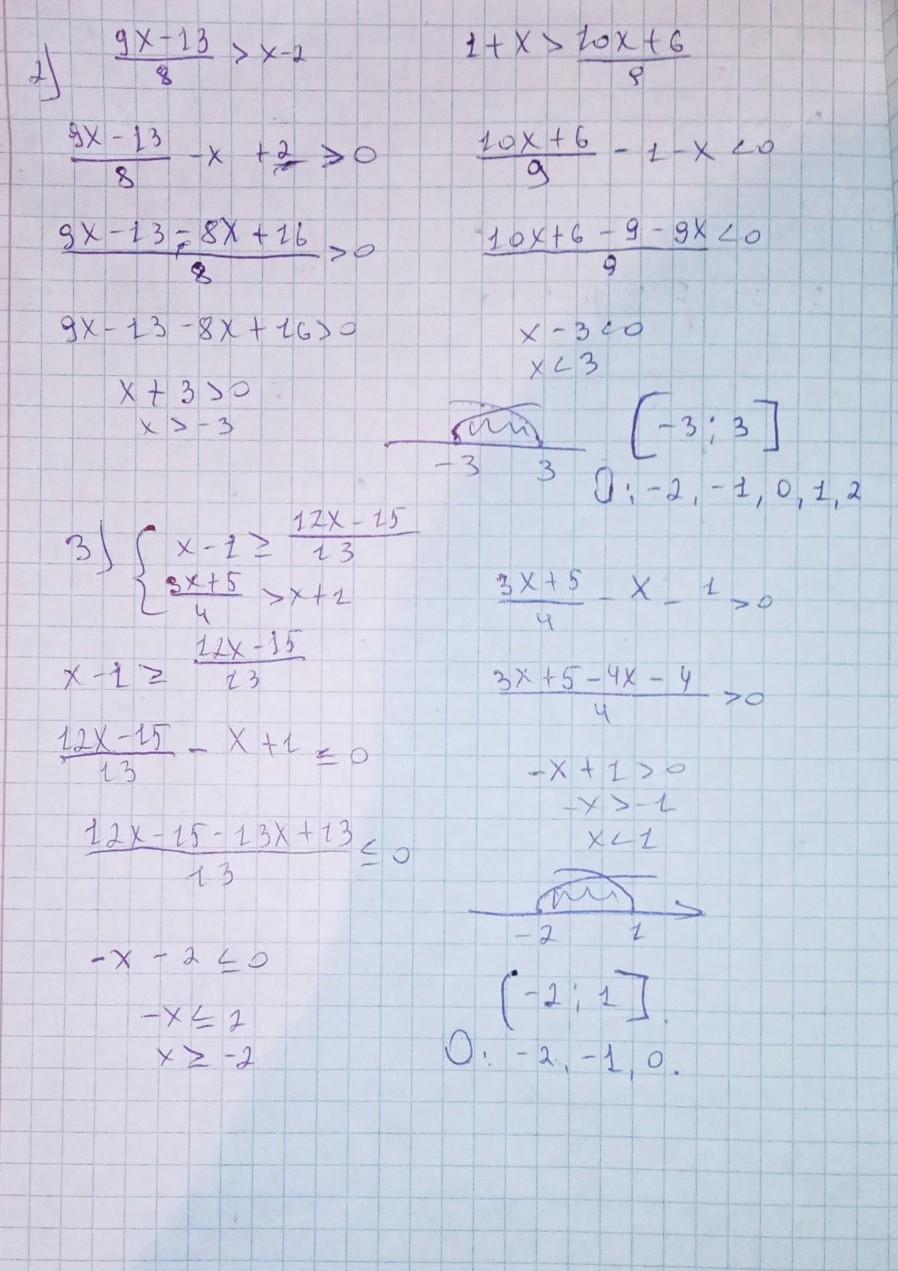 2) (9x-13)/8 > x-2
(9x-13)/8 -x +2 > 0
(9x-13-8x+16)/8 > 0
9x-13-8x+16>0
x+3>0
x>-3
1+x > (10x+6)/9
(10x+6)/9 -1-x <0
(10x+6-9-9x)/9 <0
x-3<0
x<3
-3 3
[-3; 3]
O: -2, -1, 0, 1, 2
3) { x-1 ≥ (12x-15)/13
(3x+5)/4 > x+1
x-1 ≥ (12x-15)/13
(12x-15)/13 - x+1 ≤ 0
(12x-15-13x+13)/13 ≤ 0
-x-2 ≤ 0
-x ≤ 2
x ≥ -2
(3x+5)/4 - x - 1 >0
(3x+5-4x-4)/4 >0
-x+1>0
-x>-1
x<1
-2 1
[-2; 1].
O: -2, -1, 0.